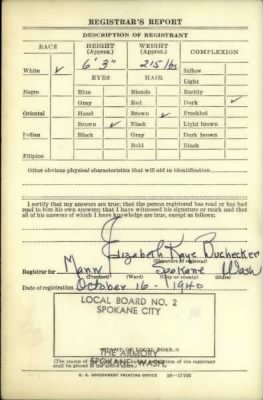 REGISTRAR'S REPORT
DESCRIPTION OF REGISTRANT
RACE HEIGHT (Approx.) WEIGHT (Approx.) COMPLEXION
White ✓ 6' 3" 215 lbs Sallow
EYES HAIR Light
Negro Blue Blonde Ruddy
Gray Red Dark ✓
Oriental Hazel Brown ✓ Freckled
Brown ✓ Black Light brown
Indian Black Gray Dark brown
Bald Black
Filipino
Other obvious physical characteristics that will aid in identification
I certify that my answers are true; that the person registered has read or has had
read to him his own answers; that I have witnessed his signature or mark and that
all of his answers of which I have knowledge are true, except as follows:
Elizabeth Kaye Buchecker
(Signature of registrar)
Registrar for Mann Spokane Wash
(Precinct) (Ward) (City or county) (State)
Date of registration October 16 - 1940
LOCAL BOARD NO. 2
SPOKANE CITY
THE ARMORY
SPOKANE WASH.
(The stamp of of the registrant
shall be placed in the above space.)
U. S. GOVERNMENT PRINTING OFFICE 16-17105